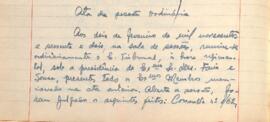 Ata da sessão ordinária
Aos dois de fevereiro de mil novecentos
e sessenta e dois, na sala de sessões, reuniu-se
ordinariamente o E. Tribunal, à hora regimen-
tal, sob a presidência do Exmo. Sr. Des. Faria e
Sousa, presentes todos os Exmos Membros men-
cionados na ata anterior. Aberta a sessão, fo-
ram julgados os seguintes feitos: Consulta nº 1/62,